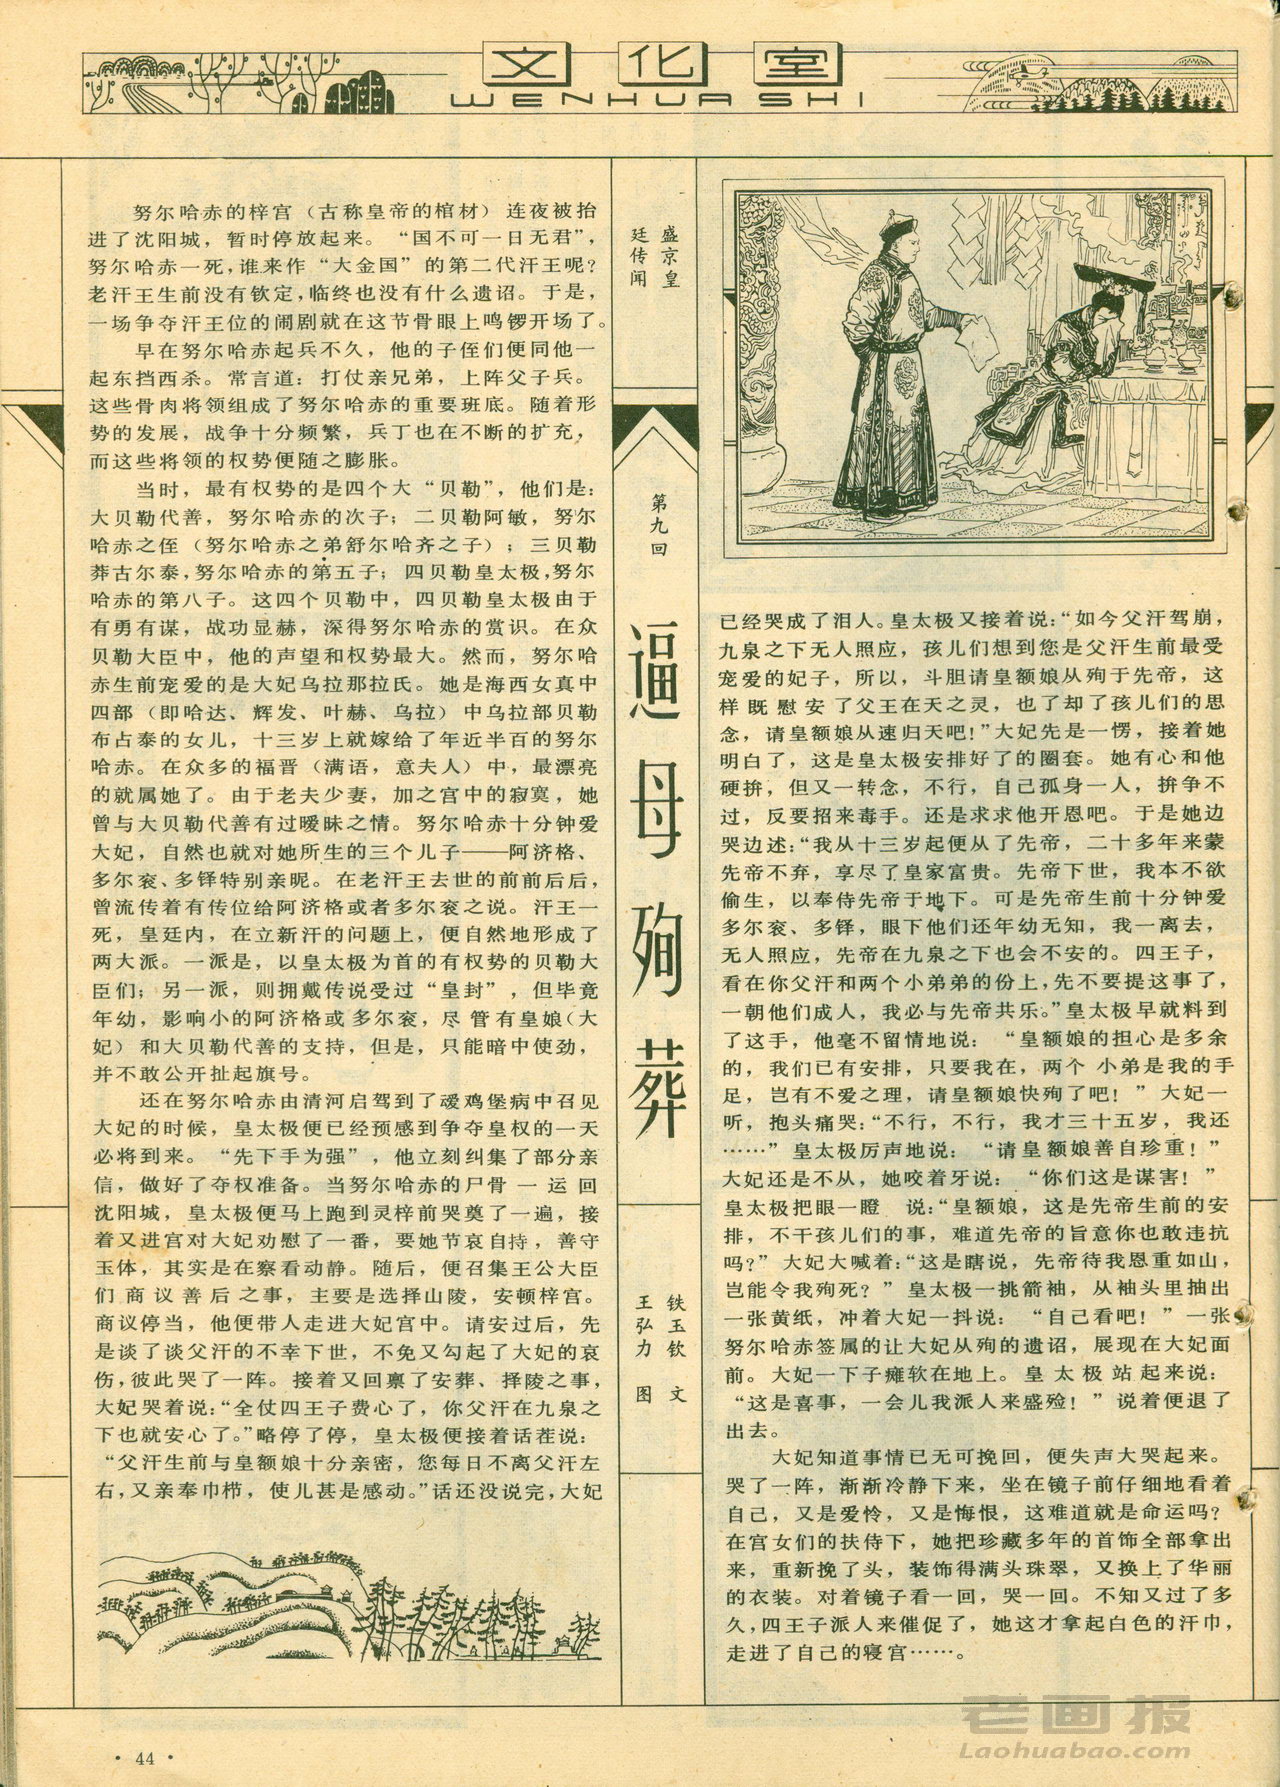 文化室
WENHUASHI
努尔哈赤的梓宫（古称皇帝的棺材）连夜被抬
进了沈阳城，暂时停放起来。“国不可一日无君”，
努尔哈赤一死，谁来作“大金国”的第二代汗王呢？
老汗王生前没有钦定，临终也没有什么遗诏。于是，
一场争夺汗王位的闹剧就在这节骨眼上鸣锣开场了。
早在努尔哈赤起兵不久，他的子侄们便同他一
起东挡西杀。常言道：打仗亲兄弟，上阵父子兵。
这些骨肉将领组成了努尔哈赤的重要班底。随着形
势的发展，战争十分频繁，兵丁也在不断的扩充，
而这些将领的权势便随之膨胀。
当时，最有权势的是四个大“贝勒”，他们是：
大贝勒代善，努尔哈赤的次子；二贝勒阿敏，努尔
哈赤之侄（努尔哈赤之弟舒尔哈齐之子）；三贝勒
莽古尔泰，努尔哈赤的第五子；四贝勒皇太极，努尔
哈赤的第八子。这四个贝勒中，四贝勒皇太极由于
有勇有谋，战功显赫，深得努尔哈赤的赏识。在众
贝勒大臣中，他的声望和权势最大。然而，努尔哈
赤生前宠爱的是大妃乌拉那拉氏。她是海西女真中
四部（即哈达、辉发、叶赫、乌拉）中乌拉部贝勒
布占泰的女儿，十三岁上就嫁给了年近半百的努尔
哈赤。在众多的福晋（满语，意夫人）中，最漂亮
的就属她了。由于老夫少妻，加之宫中的寂寞，她
曾与大贝勒代善有过暧昧之情。努尔哈赤十分钟爱
大妃，自然也就对她所生的三个儿子——阿济格、
多尔衮、多铎特别亲昵。在老汗王去世的前前后后，
曾流传着有传位给阿济格或者多尔衮之说。汗王一
死，皇廷内，在立新汗的问题上，便自然地形成了
两大派。一派是，以皇太极为首的有权势的贝勒大
臣们；另一派，则拥戴传说受过“皇封”，但毕竟
年幼，影响小的阿济格或多尔衮，尽管有皇娘（大
妃）和大贝勒代善的支持，但是，只能暗中使劲，
并不敢公开扯起旗号。
还在努尔哈赤由清河启驾到了叆鸡堡病中召见
大妃的时候，皇太极便已经预感到争夺皇权的一天
必将到来。“先下手为强”，他立刻纠集了部分亲
信，做好了夺权准备。当努尔哈赤的尸骨一运回
沈阳城，皇太极便马上跑到灵梓前哭奠了一遍，接
着又进宫对大妃劝慰了一番，要她节哀自持，善守
玉体，其实是在察看动静。随后，便召集王公大臣
们商议善后之事，主要是选择山陵，安顿梓宫。
商议停当，他便带人走进大妃宫中。请安过后，先
是谈了谈父汗的不幸下世，不免又勾起了大妃的哀
伤，彼此哭了一阵。接着又回禀了安葬、择陵之事，
大妃哭着说：“全仗四王子费心了，你父汗在九泉之
下也就安心了。”略停了停，皇太极便接着话茬说：
“父汗生前与皇额娘十分亲密，您每日不离父汗左
右，又亲奉巾栉，使儿甚是感动。”话还没说完，大妃
盛京皇
廷传闻
第九回
逼母殉葬
铁玉钦 文
王弘力 图
已经哭成了泪人。皇太极又接着说：“如今父汗驾崩，
九泉之下无人照应，孩儿们想到您是父汗生前最受
宠爱的妃子，所以，斗胆请皇额娘从殉于先帝，这
样既慰安了父王在天之灵，也了却了孩儿们的思
念，请皇额娘从速归天吧！”大妃先是一愣，接着她
明白了，这是皇太极安排好了的圈套。她有心和他
硬拚，但又一转念，不行，自己孤身一人，拚争不
过，反要招来毒手。还是求求他开恩吧。于是她边
哭边述：“我从十三岁起便从了先帝，二十多年来蒙
先帝不弃，享尽了皇家富贵。先帝下世，我本不欲
偷生，以奉侍先帝于地下。可是先帝生前十分钟爱
多尔衮、多铎，眼下他们还年幼无知，我一离去，
无人照应，先帝在九泉之下也会不安的。四王子，
看在你父汗和两个小弟弟的份上，先不要提这事了，
一朝他们成人，我必与先帝共乐。”皇太极早就料到
了这手，他毫不留情地说：“皇额娘的担心是多余
的，我们已有安排，只要我在，两个小弟是我的手
足，岂有不爱之理，请皇额娘快殉了吧！”大妃一
听，抱头痛哭：“不行，不行，我才三十五岁，我还
……”皇太极厉声地说：“请皇额娘善自珍重！”
大妃还是不从，她咬着牙说：“你们这是谋害！”
皇太极把眼一瞪 说：“皇额娘，这是先帝生前的安
排，不干孩儿们的事，难道先帝的旨意你也敢违抗
吗？”大妃大喊着：“这是瞎说，先帝待我恩重如山，
岂能令我殉死？”皇太极一挑箭袖，从袖头里抽出
一张黄纸，冲着大妃一抖说：“自己看吧！”一张
努尔哈赤签属的让大妃从殉的遗诏，展现在大妃面
前。大妃一下子瘫软在地上。皇太极站起来说：
“这是喜事，一会儿我派人来盛殓！”说着便退了
出去。
大妃知道事情已无可挽回，便失声大哭起来。
哭了一阵，渐渐冷静下来，坐在镜子前仔细地看着
自己，又是爱怜，又是悔恨，这难道就是命运吗？
在宫女们的扶侍下，她把珍藏多年的首饰全部拿出
来，重新挽了头，装饰得满头珠翠，又换上了华丽
的衣装。对着镜子看一回，哭一回。不知又过了多
久，四王子派人来催促了，她这才拿起白色的汗巾，
走进了自己的寝宫……。
· 44 ·
老画报
Laohuabao.com